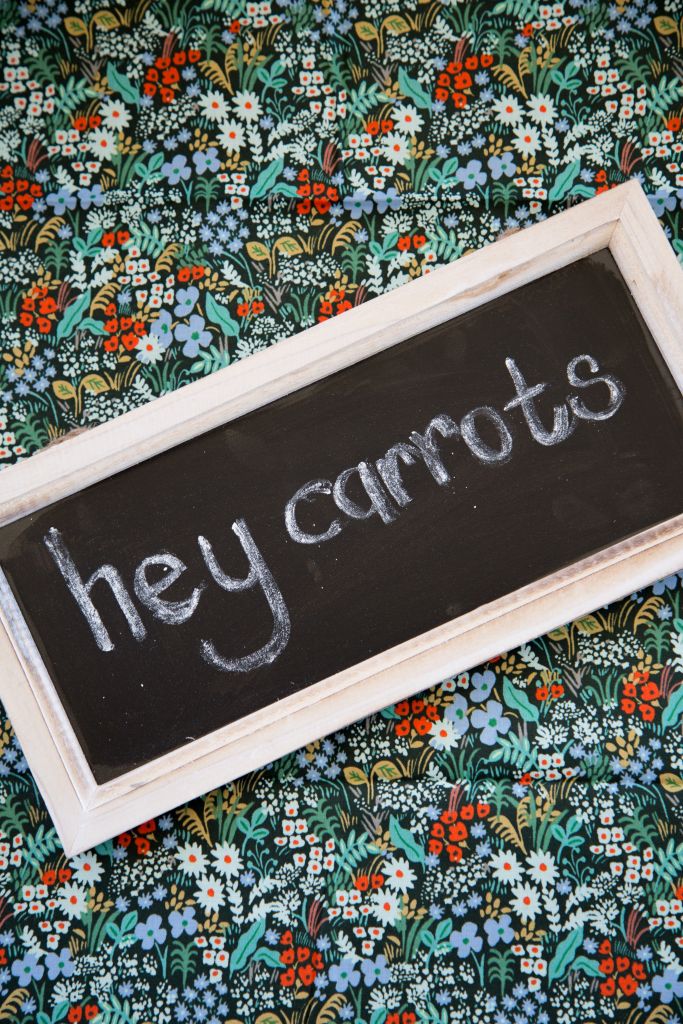 hey carrots